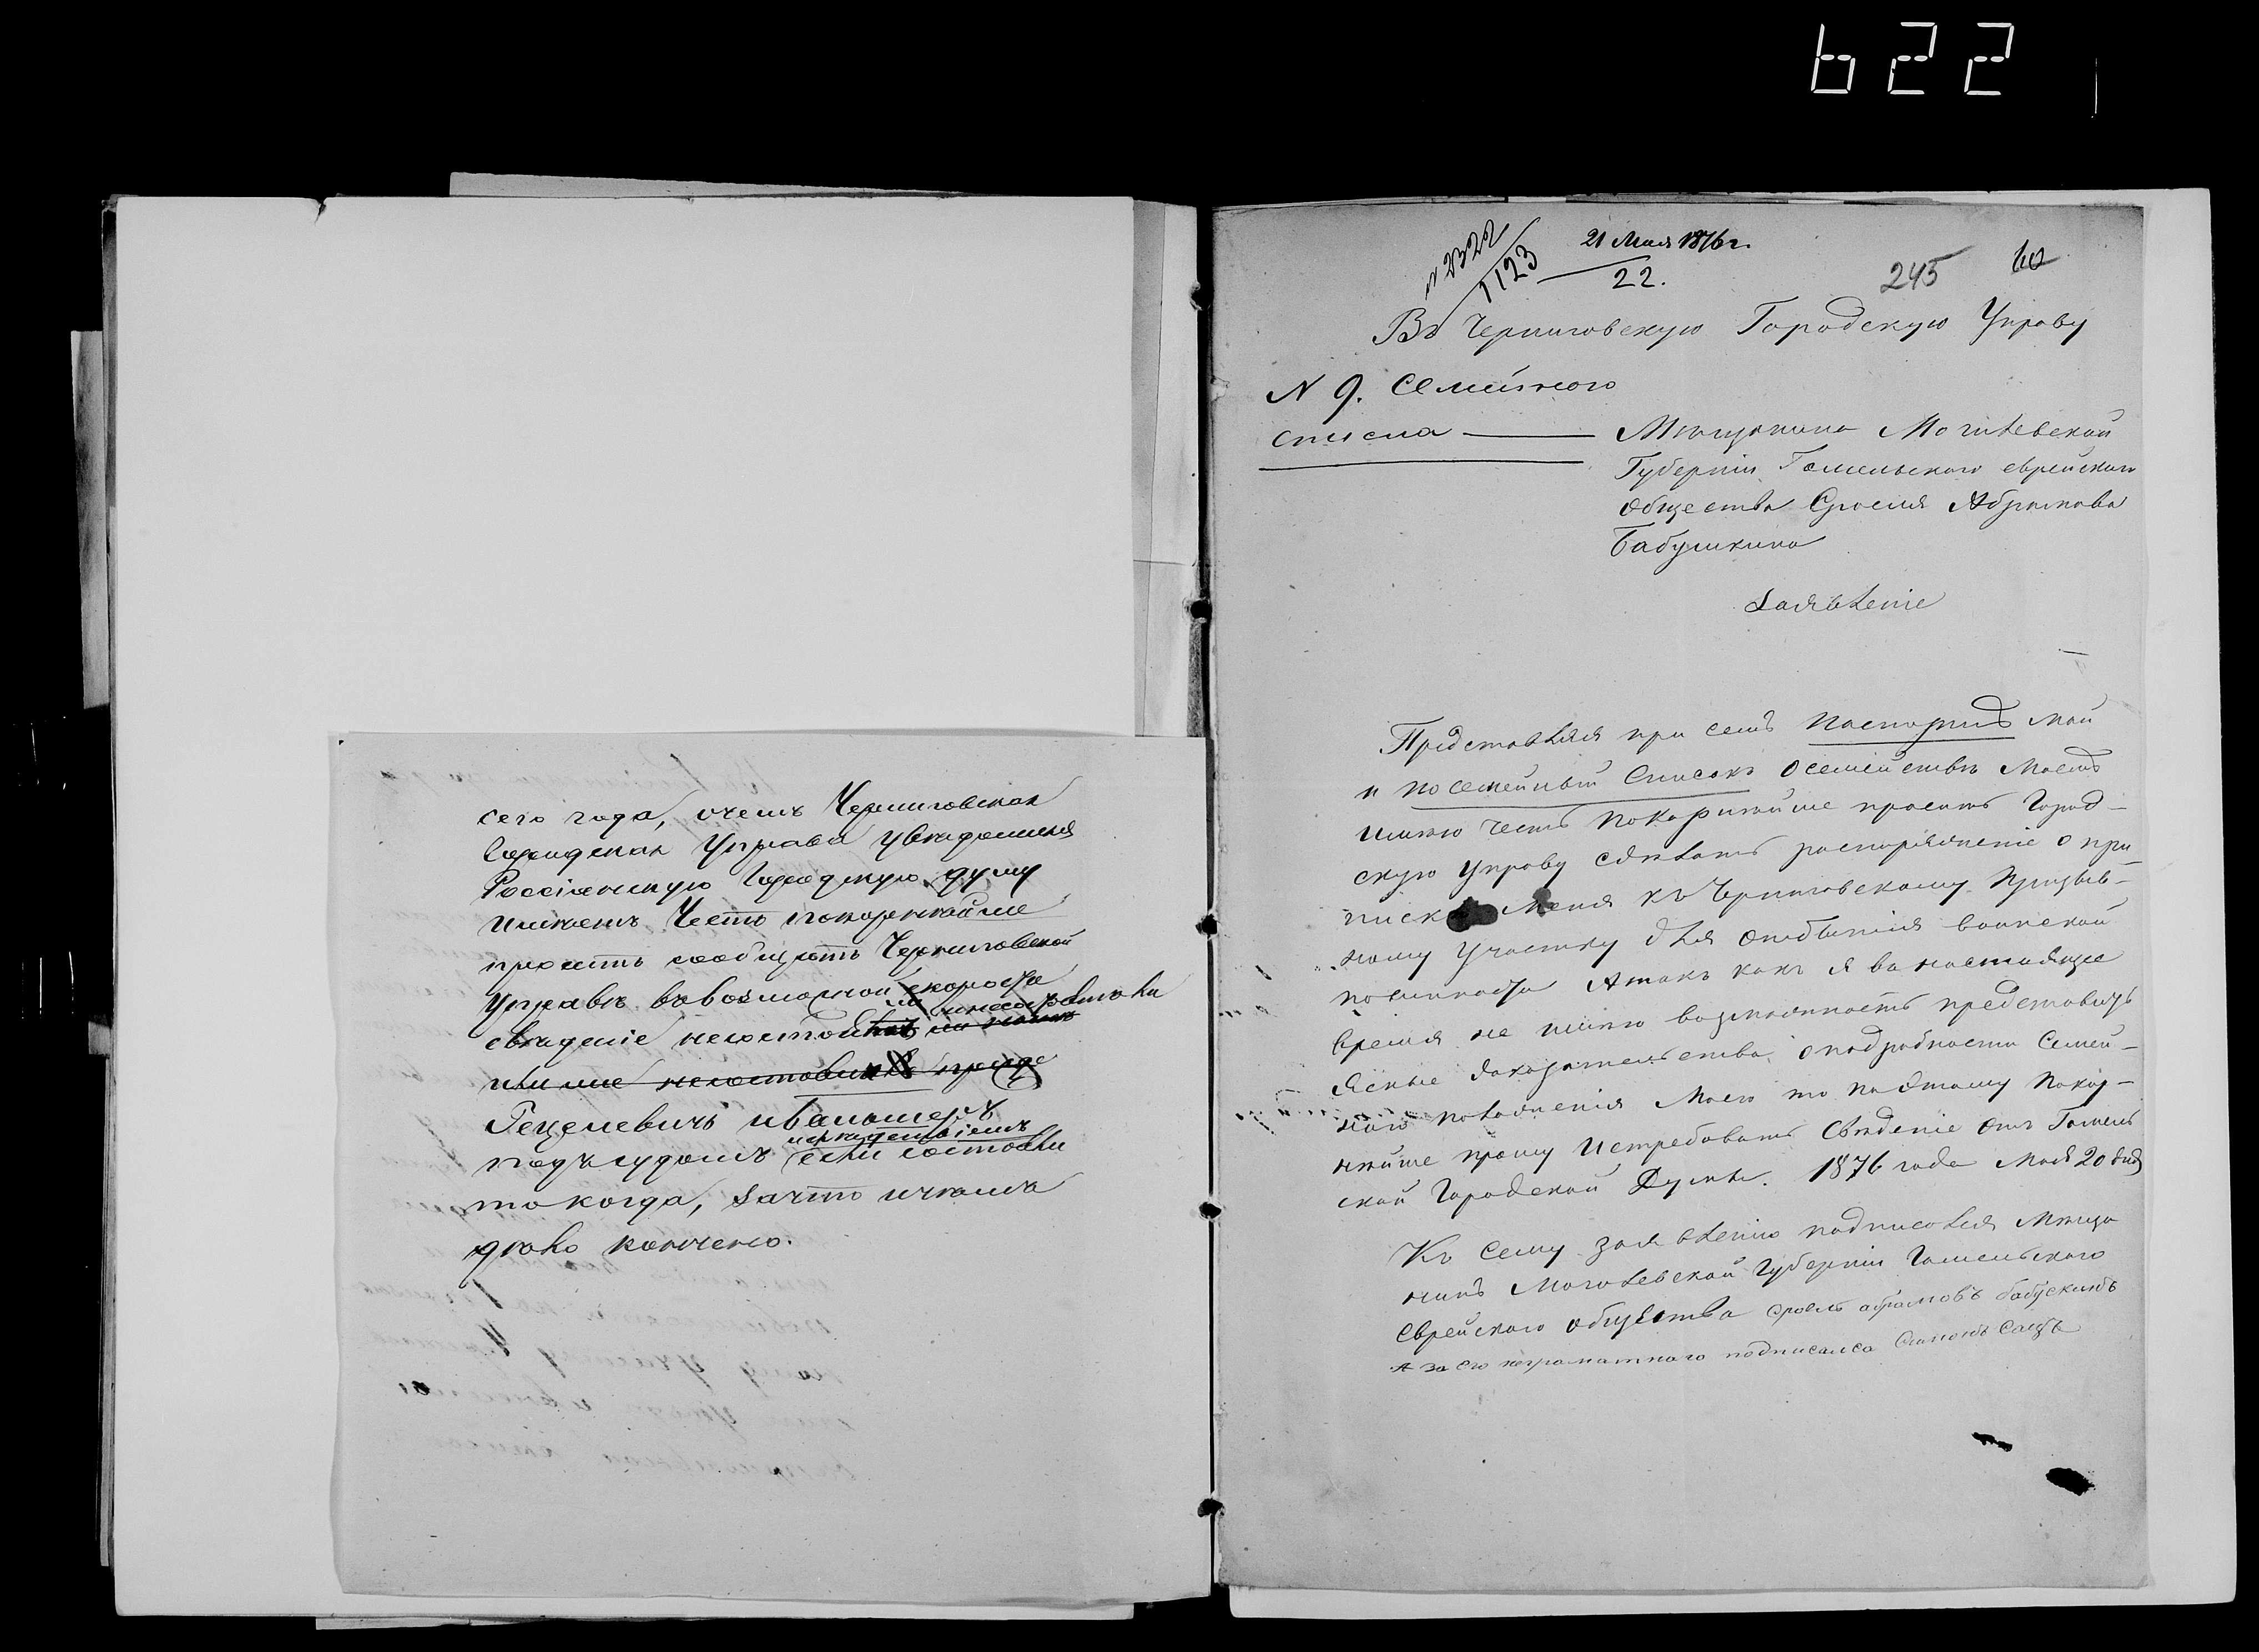 622
сего года, о чемъ Черниговская
Городская Управа увѣдомляя
Россіенскую Городскую думу
имѣетъ Честь покорнѣйше
просить сообщить Черниговской
Управѣ въ возможной скорости
свѣденіе не состоялъ ли
или не состоитъ
Гецелевичъ и
подъ судомъ если состоялъ
то когда, за что и чѣмъ
дѣло кончено.
N 2322
1123
21 Мая 1876 г.
22.
245
60
Въ Черниговскую Городскую Управу
N 9. Семейнаго
списка
Мѣщанина Могилевской
Губерніи Гомельскаго еврейскаго
общества Сроеля Абрамова
Бабушкина
Заявленіе
Представляя при семъ паспортъ мой
и посемейный Списокъ о семействѣ моемъ
имѣю честь покорнѣйше просить Город-
скую Управу сдѣлать распоряженіе о при-
пискѣ меня къ Черниговскому Призыв-
ному Участку для отбытія воинской
повинности А такъ какъ я въ настоящее
время не имѣю возможность представить
Ясные доказательства о подробности Семей-
наго положенія Моего то по этому Покор-
нѣйше прошу Истребовать Свѣденіе отъ Гомель
ской Городской Думы. 1876 года Мая 20 дня
Къ Сему заявленію подписался Мѣща
нинъ Могилевской Губерніи Гомельскаго
Еврейскаго общества Сроель абрамовъ бабускинъ
А за его неграматнаго подписалса